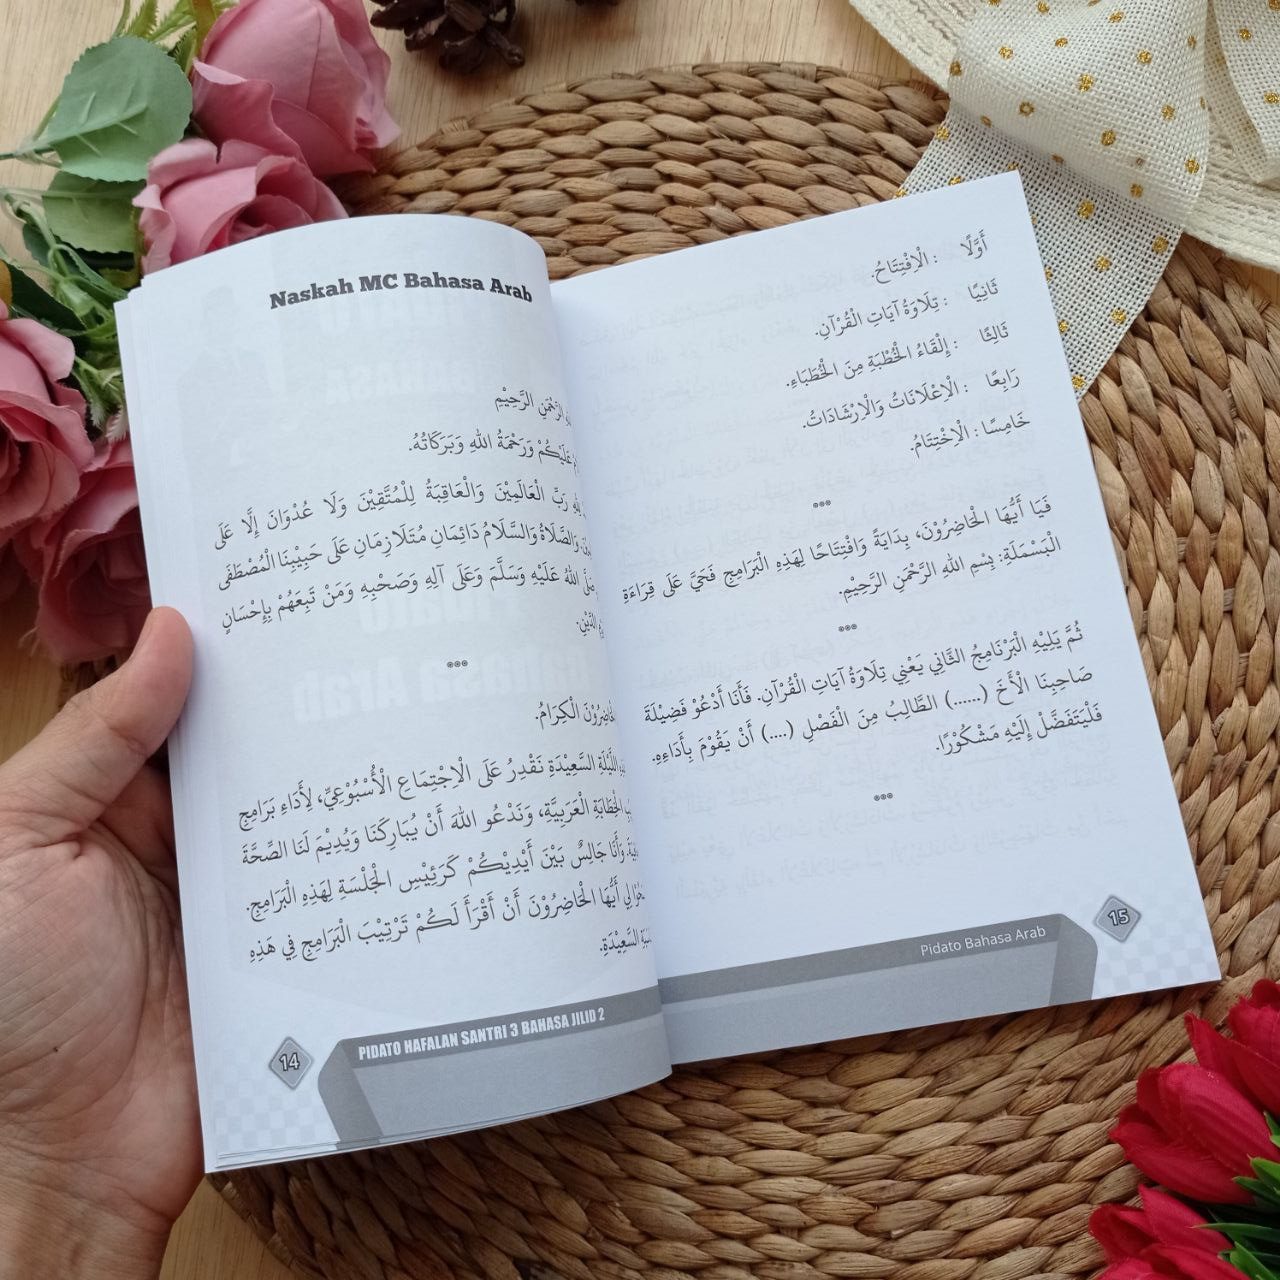 Naskah MC Bahasa Arab
الرَّحْمٰنِ الرَّحِيْمِ
عَلَيْكُمْ وَرَحْمَةُ اللهِ وَبَرَكَاتُهُ.
رَبِّ الْعَالَمِيْنَ وَالْعَاقِبَةُ لِلْمُتَّقِيْنَ وَلَا عُدْوَانَ إِلَّا عَلَى
وَالصَّلَاةُ وَالسَّلَامُ دَائِمَانِ مُتَلَازِمَانِ عَلَى حَبِيْبِنَا الْمُصْطَفَى
اللهُ عَلَيْهِ وَسَلَّمَ وَعَلَى آلِهِ وَصَحْبِهِ وَمَنْ تَبِعَهُمْ بِإِحْسَانٍ
الدِّيْنِ.
الْكِرَامُ.
اللَّيْلَةِ السَّعِيْدَةِ نَقْدِرُ عَلَى الْاِجْتِمَاعِ الْأُسْبُوْعِيِّ، لِأَدَاءِ بَرَامِجِ
الْخِطَابَةِ الْعَرَبِيَّةِ، وَنَدْعُو اللهَ أَنْ يُبَارِكَنَا وَيُدِيْمَ لَنَا الصِّحَّةَ
وَأَنَا جَالِسٌ بَيْنَ أَيْدِيْكُمْ كَرَئِيْسِ الْجَلْسَةِ لِهَذِهِ الْبَرَامِجِ.
لِي أَيُّهَا الْحَاضِرُوْنَ أَنْ أَقْرَأَ لَكُمْ تَرْتِيْبَ الْبَرَامِجِ فِي هَذِهِ
السَّعِيْدَةِ.
14
PIDATO HAFALAN SANTRI 3 BAHASA JILID 2
أَوَّلًا : الْاِفْتِتَاحُ.
ثَانِيًا : تِلَاوَةُ آيَاتِ الْقُرْآنِ.
ثَالِثًا : إِلْقَاءُ الْخُطْبَةِ مِنَ الْخُطَبَاءِ.
رَابِعًا : الْاِعْلَانَاتُ وَالْاِرْشَادَاتُ.
خَامِسًا : الْاِخْتِتَامُ.
فَيَا أَيُّهَا الْحَاضِرُوْنَ، بِدَايَةً وَافْتِتَاحًا لِهَذِهِ الْبَرَامِجِ فَحَيَّ عَلَى قِرَاءَةِ
الْبَسْمَلَةِ: بِسْمِ اللهِ الرَّحْمٰنِ الرَّحِيْمِ.
ثُمَّ يَلِيْهِ الْبَرْنَامِجُ الثَّانِي يَعْنِي تِلَاوَةُ آيَاتِ الْقُرْآنِ. فَأَنَا أَدْعُوْ فَضِيْلَةَ
صَاحِبِنَا الْأَخَ (......) الطَّالِبُ مِنَ الْفَصْلِ (....) أَنْ يَقُوْمَ بِأَدَاءِهِ.
فَلْيَتَفَضَّلْ إِلَيْهِ مَشْكُوْرًا.
Pidato Bahasa Arab
15